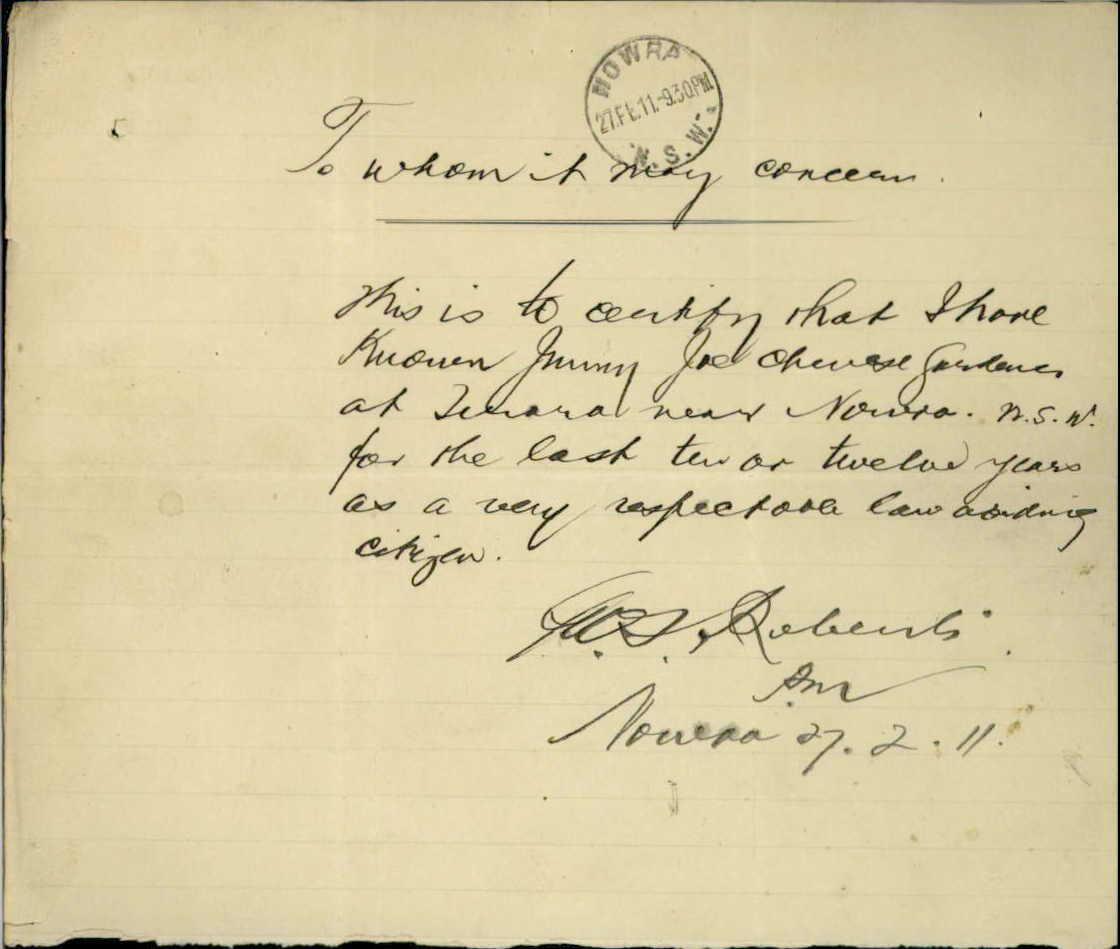 NOWRA
27.FE.11.-9.30PM
N.S.W.
To whom it may concern.
This is to certify that I have
Known Jimmy Joe Chinese Gardener
at Terara near Nowra. N.S.W.
for the last ten or twelve years
as a very respectable law abiding
citizen.
Roberts
P.M
Nowra 27.2.11.